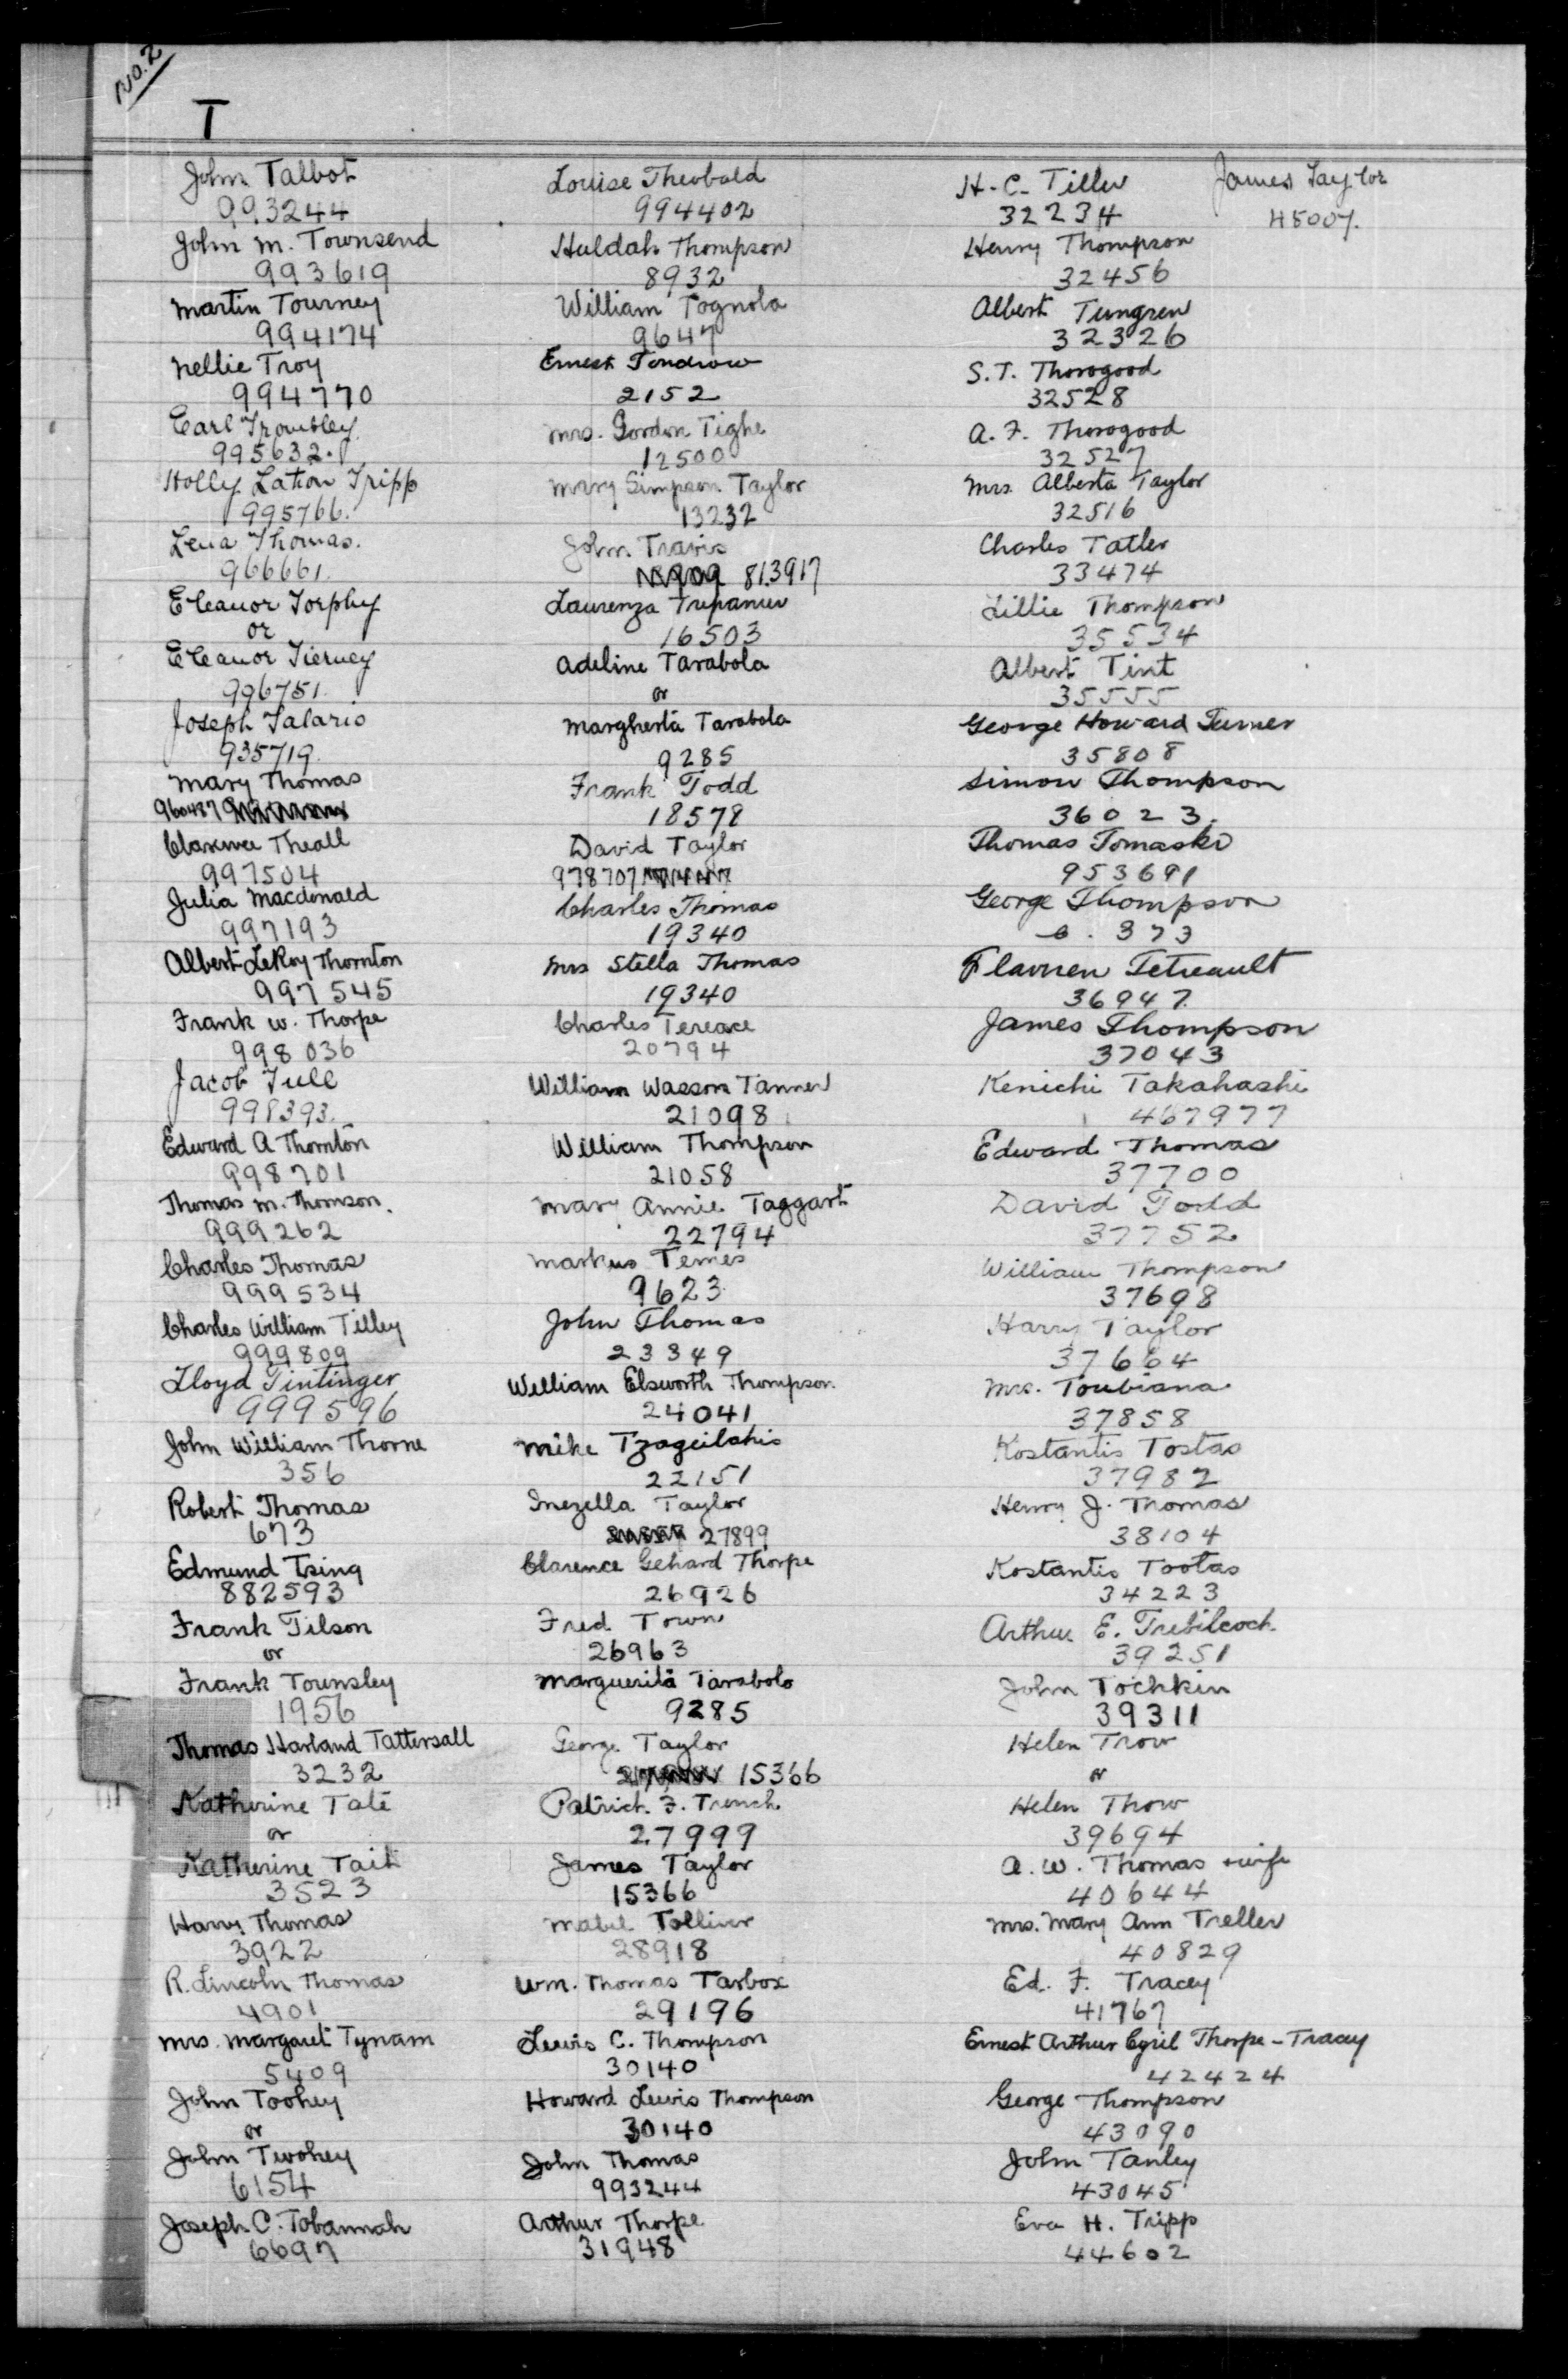 No. 2
T
John Talbot
993244
John M. Townsend
993619
Martin Tourney
994174
Nellie Troy
994770
Earl Trombley
995632.
Holly Lation Tripp
995766.
Lena Thomas.
966661.
Eleanor Torphy
or
Eleanor Tierney
996751.
Joseph Talario
935719.
Mary Thomas
960487
Clarence Theall
997504
Julia Macdonald
997193
Albert LeRoy Thornton
997545
Frank W. Thorpe
998036
Jacob Tull
998393.
Edward A Thornton
998701
Thomas M. Thomson.
999262
Charles Thomas
999534
Charles William Tilley
999809
Lloyd Tintinger
999596
John William Thorne
356
Robert Thomas
673
Edmund Tsing
882593
Frank Tilson
or
Frank Tounsley
1956
Thomas Harland Tattersall
3232
Katherine Tate
or
Katherine Tait
3523
Harry Thomas
3922
R. Lincoln Thomas
4901
Mrs. Margaret Tynam
5409
John Toohey
or
John Twohey
6154
Joseph C. Tobannah
6697
Louise Theobald
994402
Huldah Thompson
8932
William Tognola
9647
Ernest Tondrow
2152
Mrs. Gordon Tighe
12500
Mary Simpson Taylor
13232
John Travis
813917
Laurenza Trepanier
16503
Adeline Tarabola
or
Margherta Tarabola
9285
Frank Todd
18578
David Taylor
978707
Charles Thomas
19340
Mrs Stella Thomas
19340
Charles Tereace
20794
William Wasson Tanner
21098
William Thompson
21058
Mary Annie Taggart
22794
Markus Temes
9623
John Thomas
23349
William Elsworth Thompson.
24041
Mike Tzageilakis
22151
Inezella Taylor
27899
Clarence Gehard Thorpe
26926
Fred Town
26963
Marguerita Tarabolo
9285
George Taylor
15366
Patrick F. Trench
27999
James Taylor
15366
Mabel Tolliver
28918
Wm. Thomas Tarbox
29196
Lewis C. Thompson
30140
Howard Lewis Thompson
30140
John Thomas
993244
Arthur Thorpe
31948
H. C. Tiller
32234
Henry Thompson
32456
Albert Tungren
32326
S. T. Thorogood
32528
A. F. Thorogood
32527
Mrs. Alberta Taylor
32516
Charles Tatler
33474
Lillie Thompson
35534
Albert Tint
35555
George Howard Turner
35808
Simon Thompson
36023.
Thomas Tomaski
953691
George Thompson
373
Flavien Tetreault
36947.
James Thompson
37043
Kenichi Takahashi
467977
Edward Thomas
37700
David Todd
37752
William Thompson
37698
Harry Taylor
37664
Mrs. Toubiana
37858
Kostantis Tostas
37982
Henry J. Thomas
38104
Kostantis Tootas
34223
Arthur E. Trebilcock
39251
John Tochkin
39311
Helen Trow
or
Helen Throw
39694
A. W. Thomas + wife
40644
Mrs. Mary Ann Treller
40829
Ed. F. Tracey
41767
Ernest Arthur Cyril Thorpe - Tracey
42424
George Thompson
43090
John Tanley
43045
Eva H. Tripp
44602
James Taylor
45007.